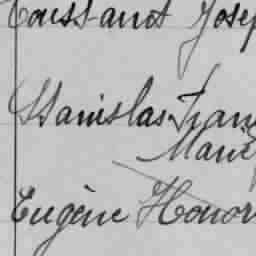 Toussaint Josep
Stanislas Fran
Marie
Eugène Honor